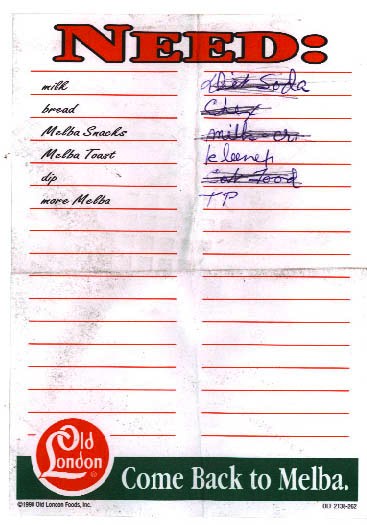 NEED:
milk
bread
Melba Snacks
Melba Toast
dip
more Melba
Diet Soda
milk cr
kleenex
Cat Food
TP
Old London
Come Back to Melba.
©1994 Old London Foods, Inc.